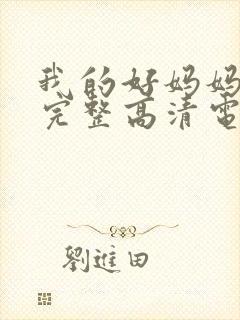 我的好妈妈
完整高清电
劉進田